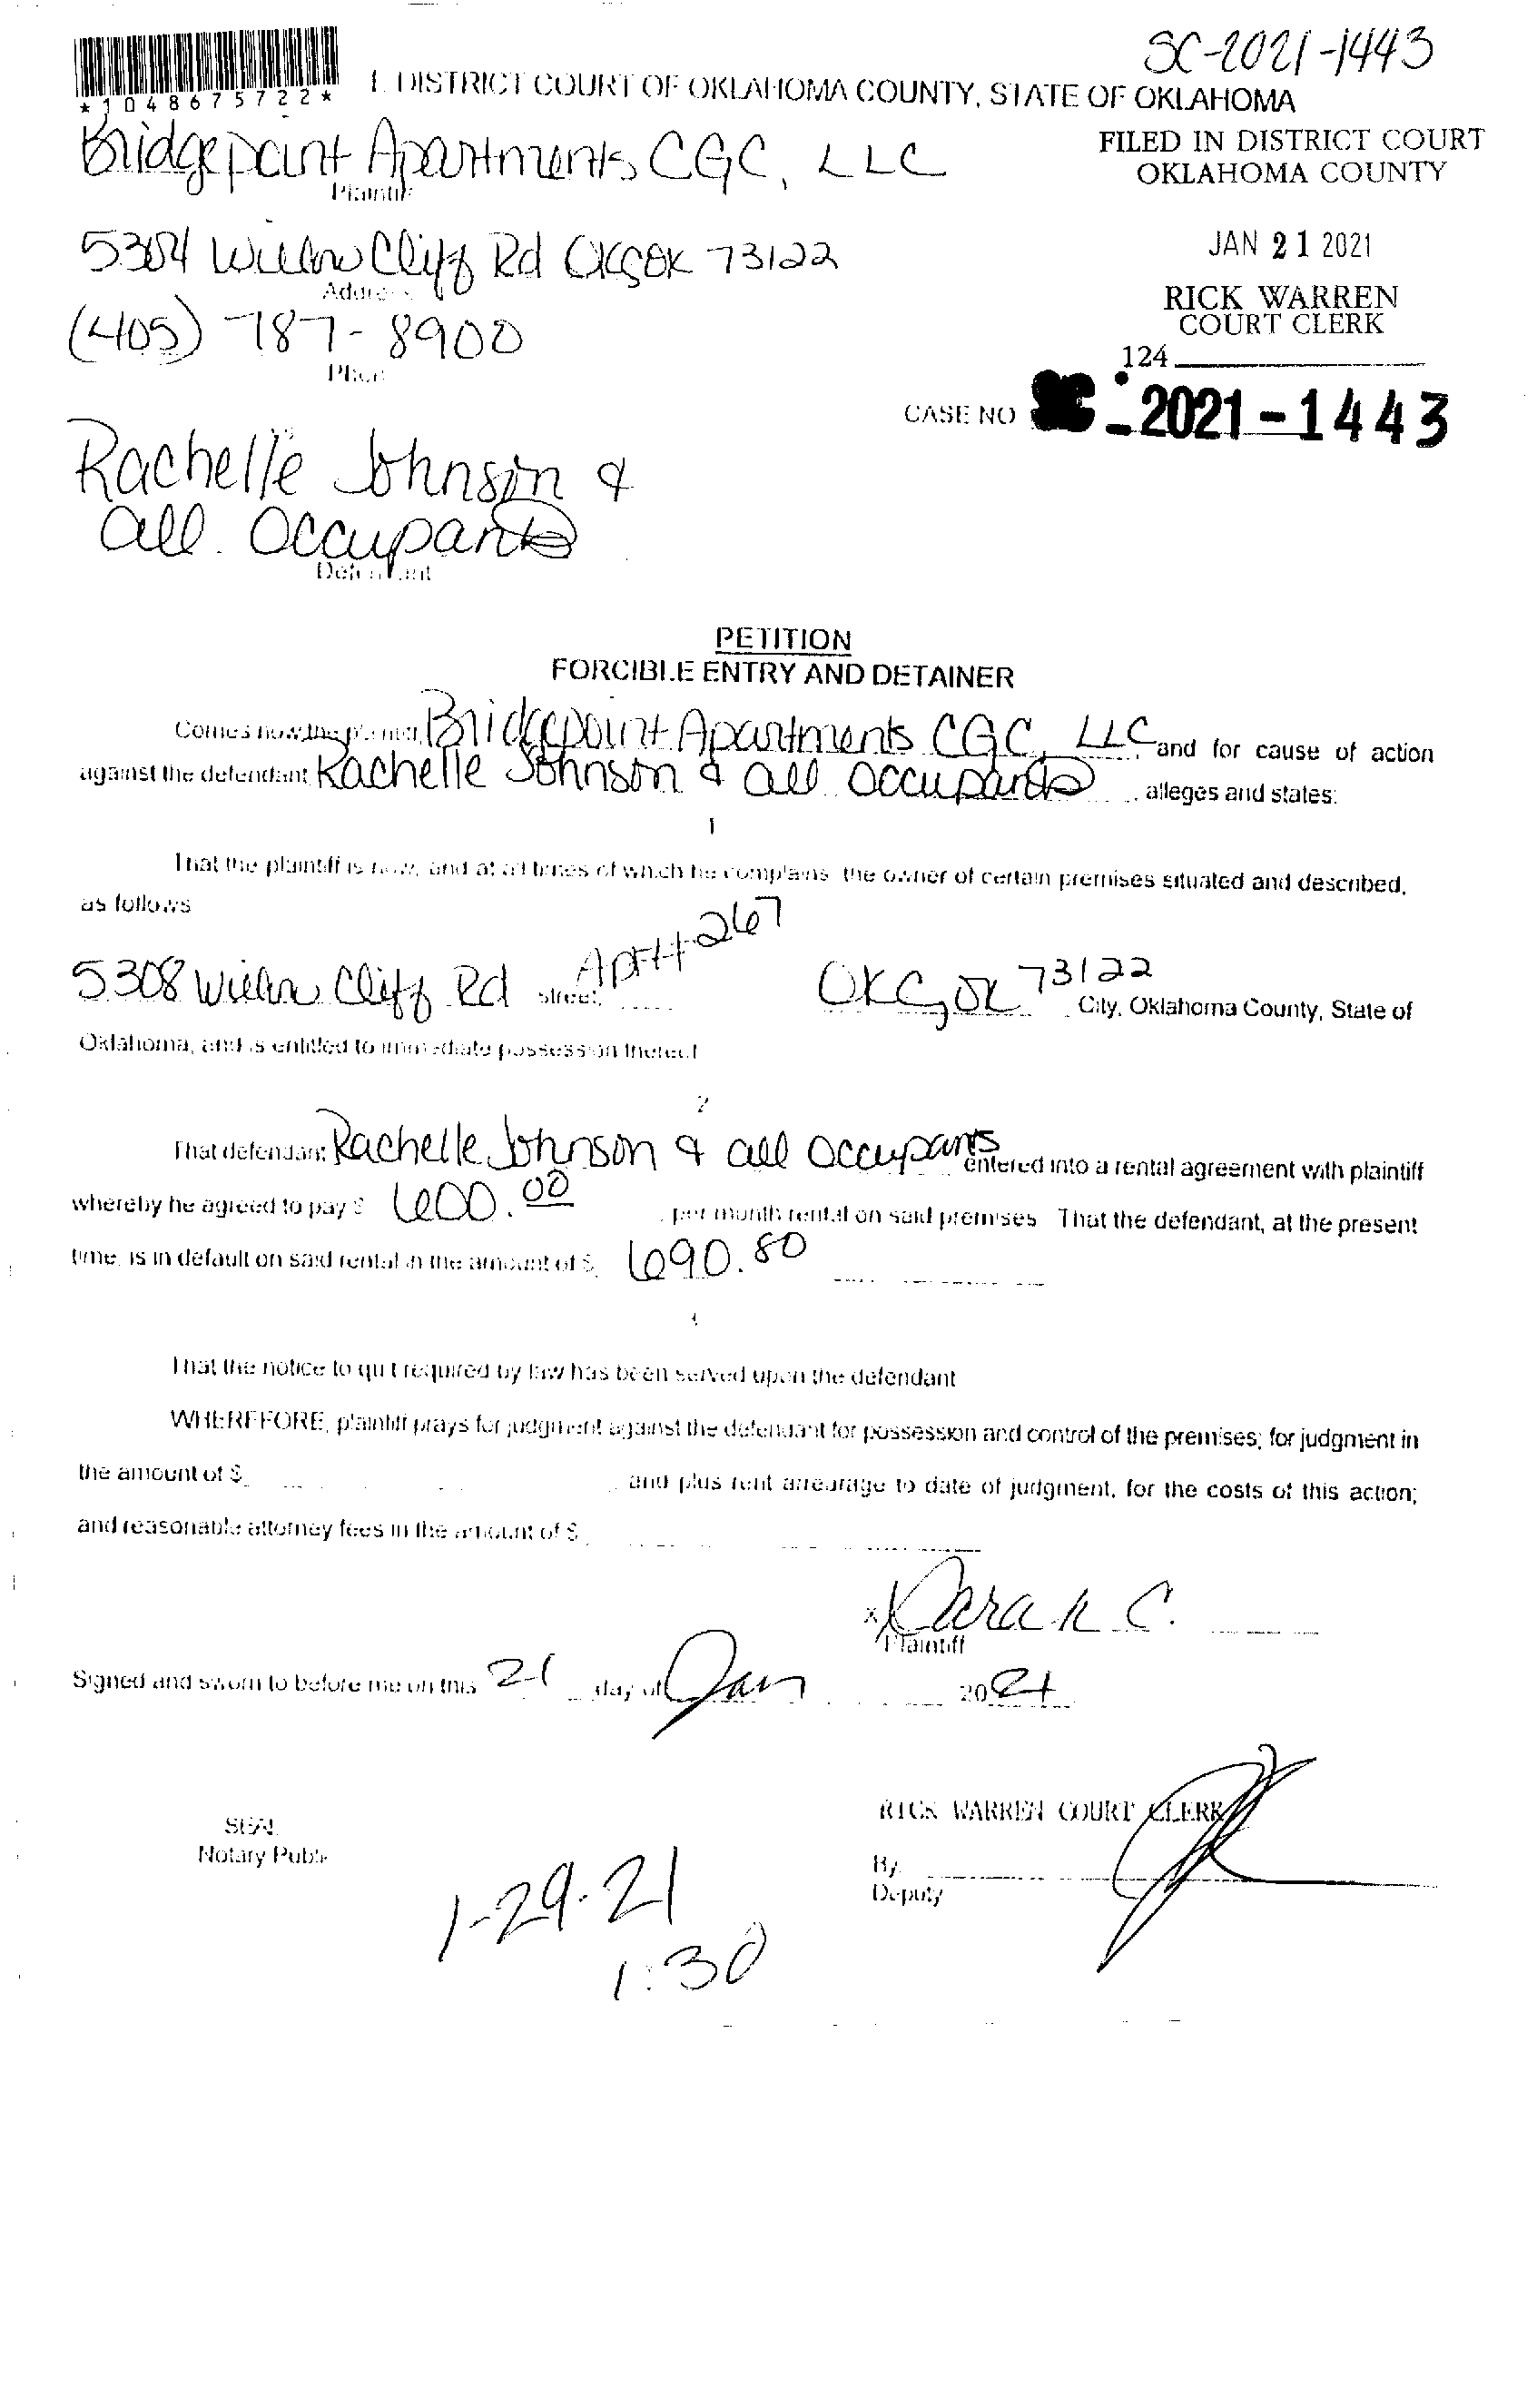 SC-2021-1443
DISTRICT COURT OF OKLAHOMA COUNTY, STATE OF OKLAHOMA
*1048675722*
Bridgepoint Apartments CGC, LLC
Plaintiff
FILED IN DISTRICT COURT
OKLAHOMA COUNTY
5304 Willow Cliff Rd OKC OK 73122
Address
JAN 21 2021
(405) 787-8900
Phone
RICK WARREN
COURT CLERK
124
CASE NO SC-2021-1443
Rachelle Johnson &
all Occupants
Defendant
PETITION
FORCIBLE ENTRY AND DETAINER
Comes now the plaintiff Bridgepoint Apartments CGC, LLC and for cause of action
against the defendant Rachelle Johnson & all occupants, alleges and states:
1
That the plaintiff is now, and at all times of which he complains, the owner of certain premises situated and described,
as follows
5308 Willow Cliff Rd Street, Apt# 267 OKC, OK 73122 City, Oklahoma County, State of
Oklahoma, and is entitled to immediate possession thereof
2
That defendant Rachelle Johnson & all occupants entered into a rental agreement with plaintiff
whereby he agreed to pay $ 600.00 per month rental on said premises That the defendant, at the present
time, is in default on said rental in the amount of $ 690.80
That the notice to quit required by law has been served upon the defendant
WHEREFORE, plaintiff prays for judgment against the defendant for possession and control of the premises; for judgment in
the amount of $ and plus rent arrearage to date of judgment, for the costs of this action;
and reasonable attorney fees in the amount of $
x
Plaintiff
Signed and sworn to before me on this 21 day of Jan 2021
RICK WARREN COURT CLERK
SEAL
Notary Public
By
Deputy
1-29-21
1:30